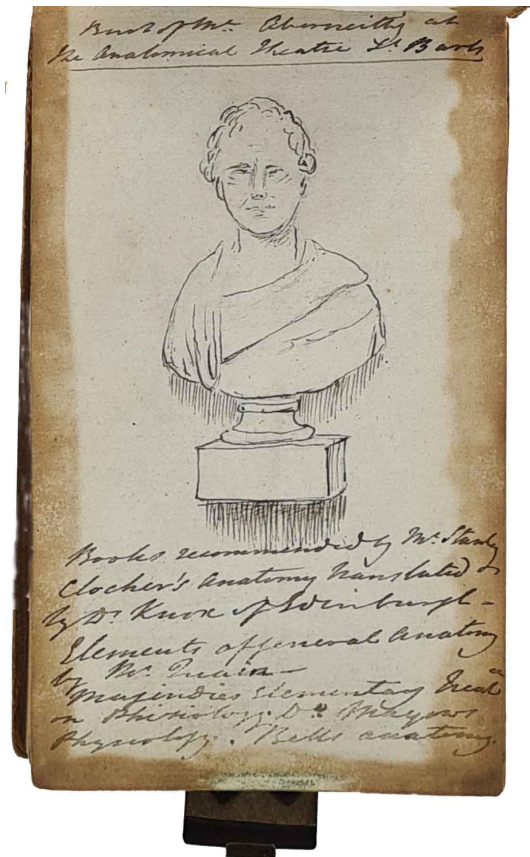 Bust of Mr. Abernethy at
the Anatomical Theatre St. Barts
Books recommended by Mr. Stanly
Clocher's Anatomy translated
by Dr. Knox of Edinburgh -
Elements of general anatomy
by Mr. Quain -
Majendies Elementary Treat
on Phisiology. Dr.
Physiology. Bells anatomy.